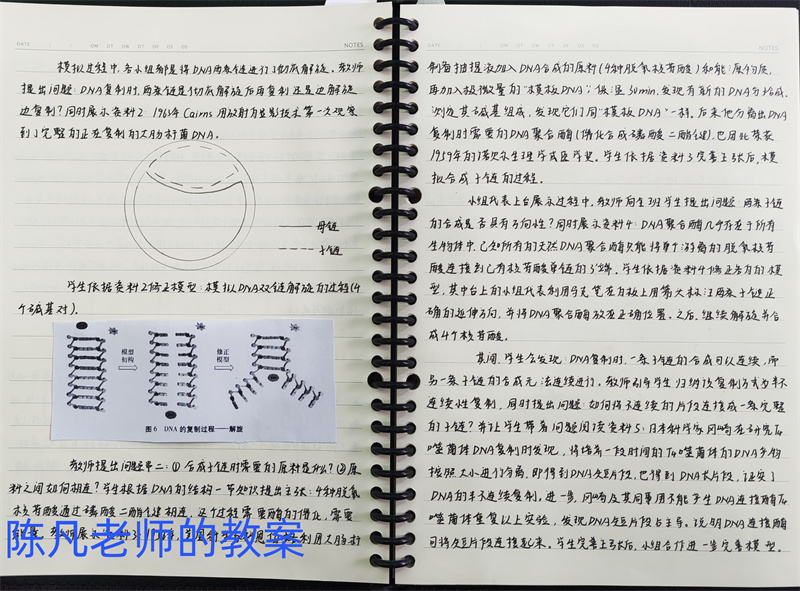 DATE
NOTES
模拟过程中,各小组都是将DNA两条链进行了彻底解旋。教师
提出问题:DNA复制时,两条链是彻底解旋后再复制还是边解旋
边复制?同时展示资料2:1963年Cairns用放射自显影技术第一次观察
到了完整的正在复制的大肠杆菌DNA。
母链
子链
学生依据资料2修正模型:模拟DNA双链解旋的过程(4
个碱基对)。
模型
初构
修正
模型
图6 DNA的复制过程——解旋
教师提出问题串二:①合成子链时需要的原料是什么?②原
料之间如何相连?学生根据DNA的结构一节知识提出主张:4种脱氧
核苷酸通过磷酸二酯键相连,这个过程需要酶的催化,需要
陈凡老师的教案
DATE
NOTES
制备抽提液加入DNA合成的原料(4种脱氧核苷酸)和能源物质,
再加入极微量的“模板DNA”;保温30min,发现有新的DNA为合成.
测定其碱基组成,发现它们同“模板DNA”一样。后来他分离出DNA
复制时需要的DNA聚合酶(催化合成磷酸二酯键).也因此荣获
1959年的诺贝尔生理学或医学奖。学生依据资料3完善主张后,模
拟合成子链的过程。
小组代表上台展示过程中,教师向全班学生提出问题:两条子链
的合成是否具有方向性?同时展示资料4:DNA聚合酶几乎存在于所有
生物体中,已知所有的天然DNA聚合酶只能将单个游离的脱氧核苷
酸连接到已有核苷酸单链的3'端。学生依据资料4修正各自的模
型,其中台上的小组代表利用马克笔在白板上用箭头标注两条子链正
确的延伸方向,并将DNA聚合酶放在正确位置。之后,继续解旋并合
成4个核苷酸。
其间,学生会发现:DNA复制时,一条子链的合成可以连续,而
另一条子链的合成无法连续进行。教师引导学生归纳该复制方式为半不
连续性复制,同时提出问题:如何将不连续的片段连接成一条完整
的子链?并让学生带着问题阅读资料5:日本科学家冈崎在研究T4
噬菌体DNA复制时发现,将培养一段时间的T4噬菌体的DNA产物
按照大小进行分离,即得到DNA短片段,也得到DNA长片段,证实了
DNA的半不连续复制。进一步,冈崎及其同事用不能产生DNA连接酶的T4
噬菌体重复以上实验,发现DNA短片段占主导。说明DNA连接酶
可将短片段连接起来。学生完善主张后,小组合作进一步完善模型。